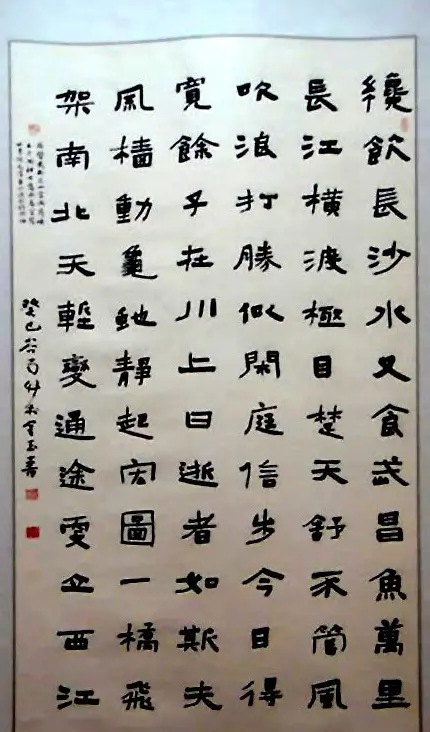 纔飲長沙水又食武昌魚萬里
長江橫渡極目楚天舒不管風
吹浪打勝似閑庭信步今日得
寬餘子在川上曰逝者如斯夫
風檣動龜蛇靜起宏圖一橋飛
架南北天塹變通途更立西江
癸巳谷雨